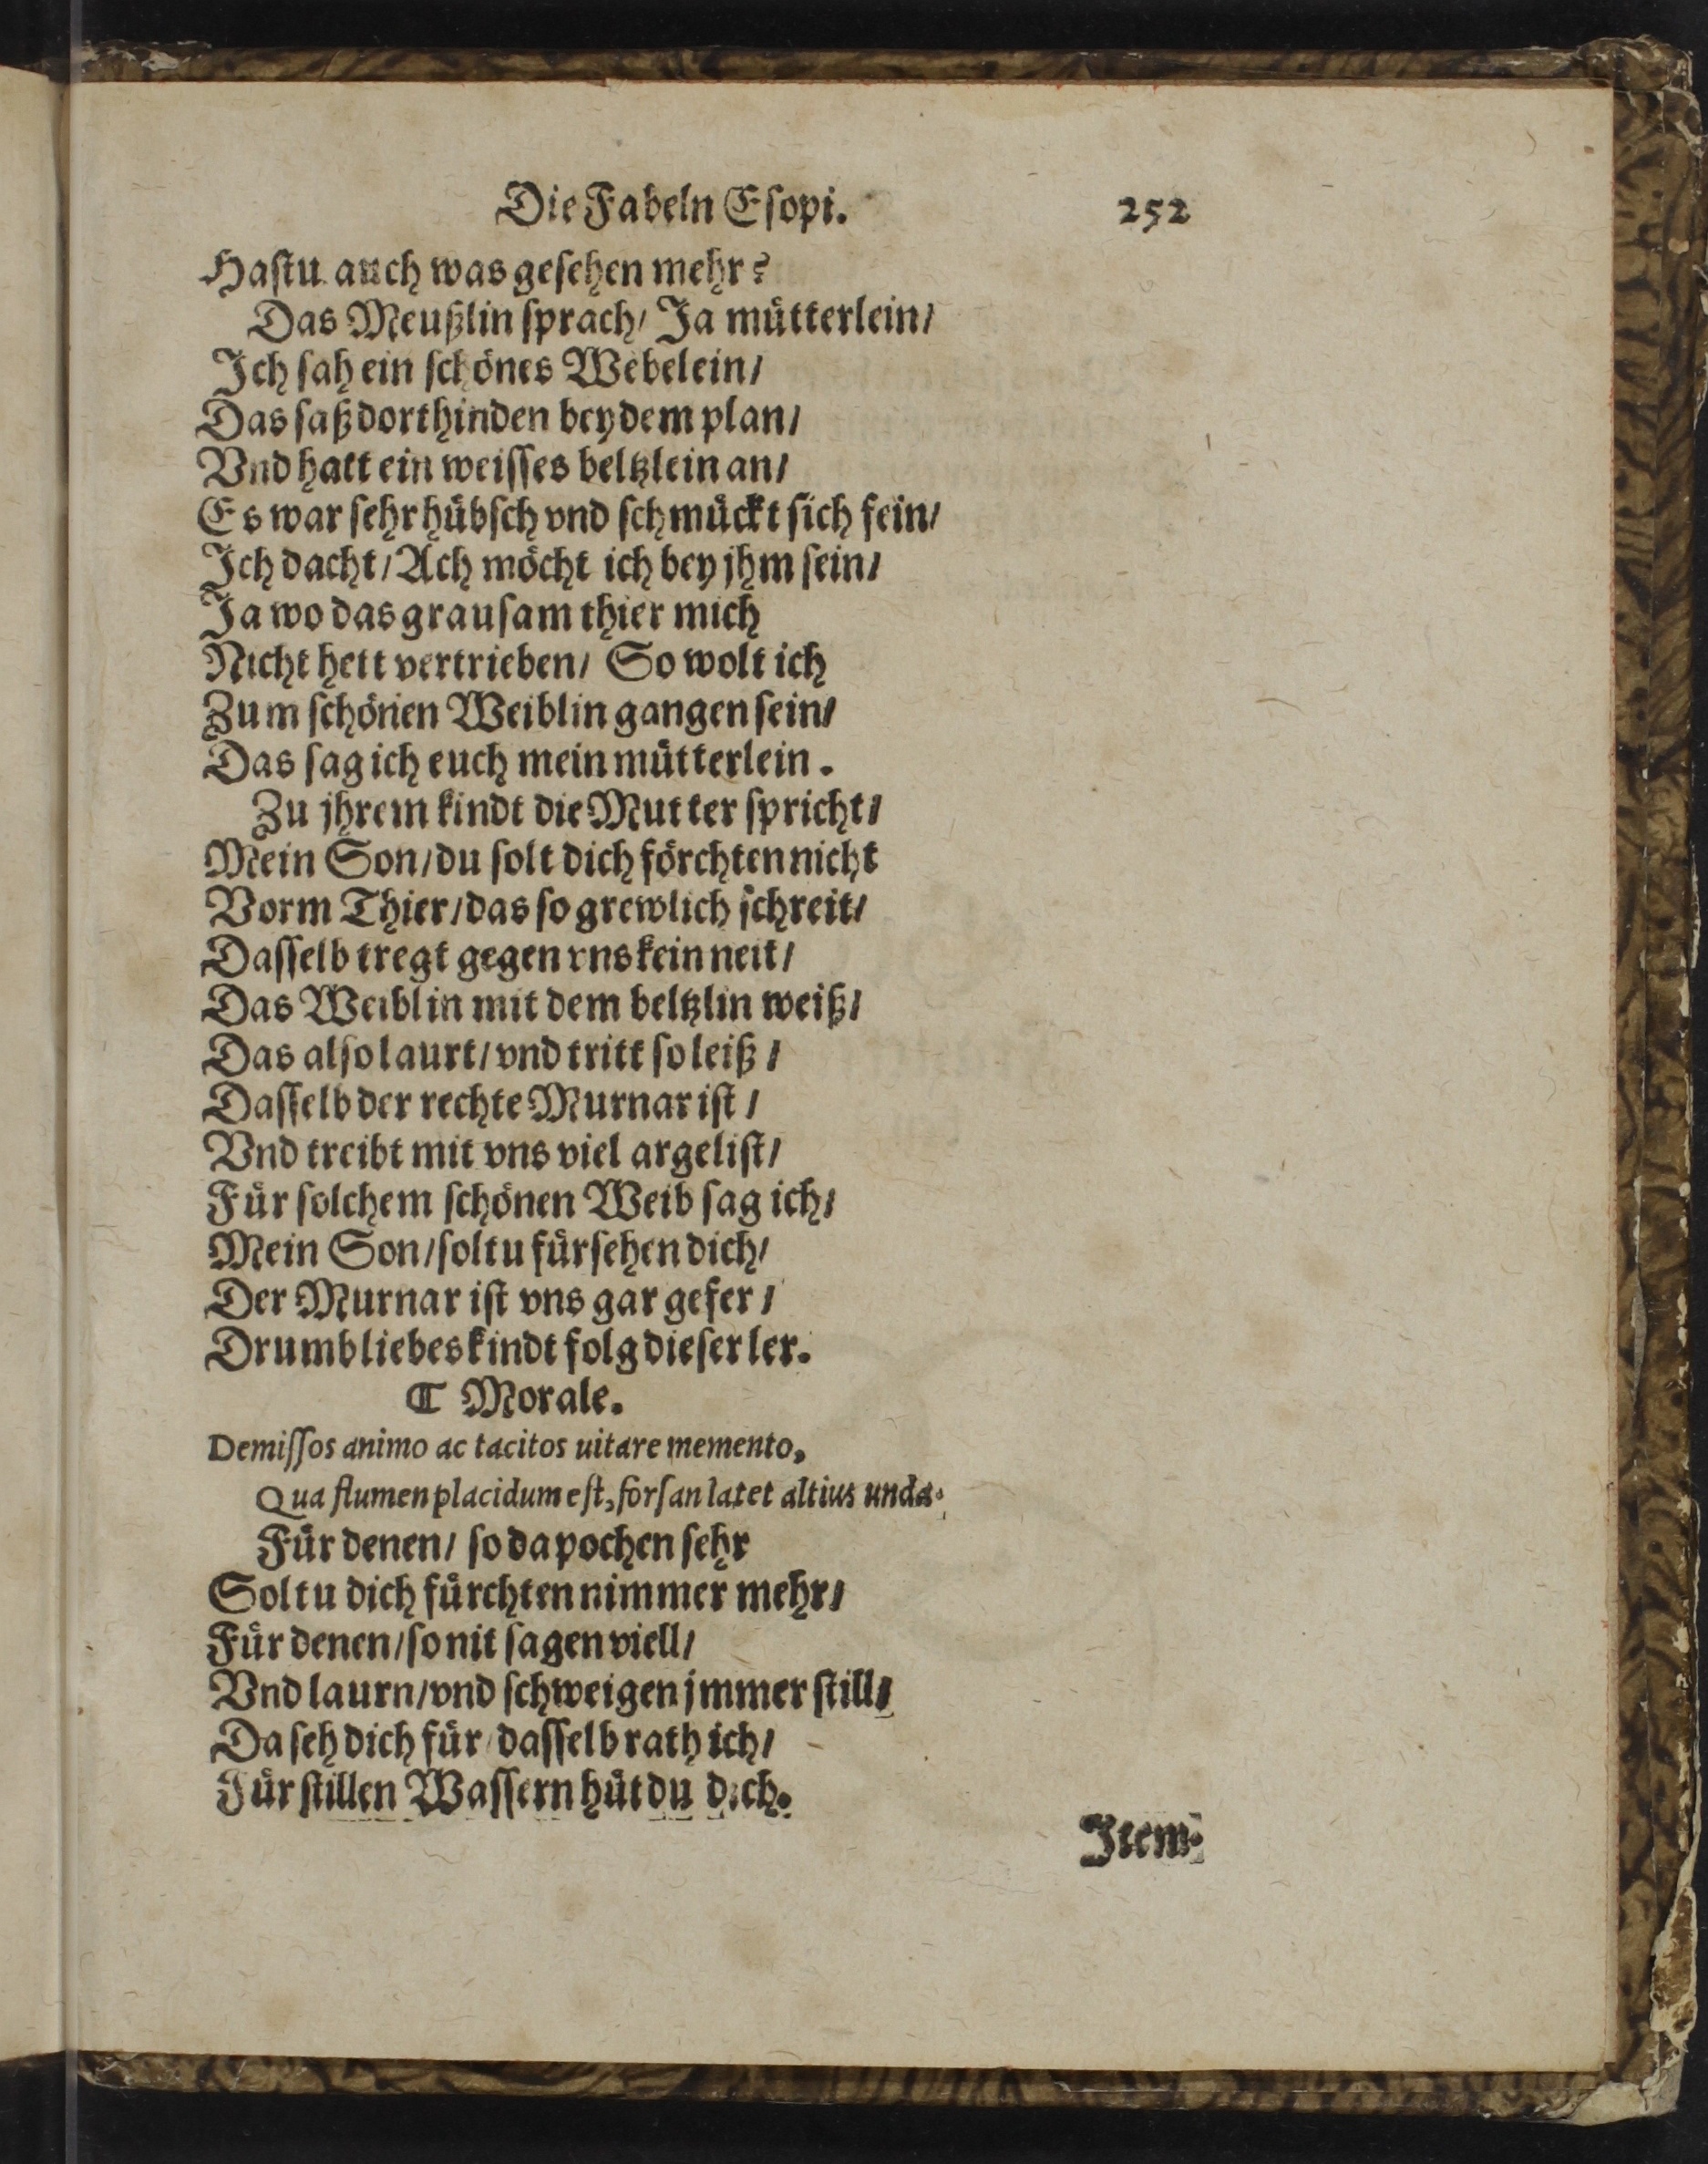 Die Fabeln Esopi. 252
Hastu auch was gesehen mehr?
Das Meußlin sprach/ Ja mütterlein/
Ich sah ein schönes Webelein/
Das saß dorthinden bey dem plan/
Vnd hatt ein weisses beltzlein an/
Es war sehr hübsch vnd schmückt sich fein/
Ich dacht/ Ach möcht ich bey jhm sein/
Ja wo das grausam thier mich
Nicht hett vertrieben/ So wolt ich
Zum schönen Weiblin gangen sein/
Das sag ich euch mein mütterlein.
Zu jhrem kindt die Mutter spricht/
Mein Son/ du solt dich förchten nicht
Vorm Thier/ das so grewlich schreit/
Dasselb tregt gegen vns kein neit/
Das Weiblin mit dem beltzlin weiß/
Das also laurt/ vnd tritt so leiß/
Dasselb der rechte Murnar ist/
Vnd treibt mit vns viel argelist/
Für solchem schönen Weib sag ich/
Mein Son/ soltu fürsehen dich/
Der Murnar ist vns gar gefer/
Drumb liebes kindt folg dieser ler.
⸿ Morale.
Demissos animo ac tacitos uitare memento,
Qua flumen placidum est, forsan latet altius unda.
Für denen/ so da pochen sehr
Soltu dich fürchten nimmer mehr/
Für denen/ so nit sagen viell/
Vnd laurn/ vnd schweigen jmmer still/
Da seh dich für/ dasselb rath ich/
Für stillen Wassern hüt du dich.
Item.